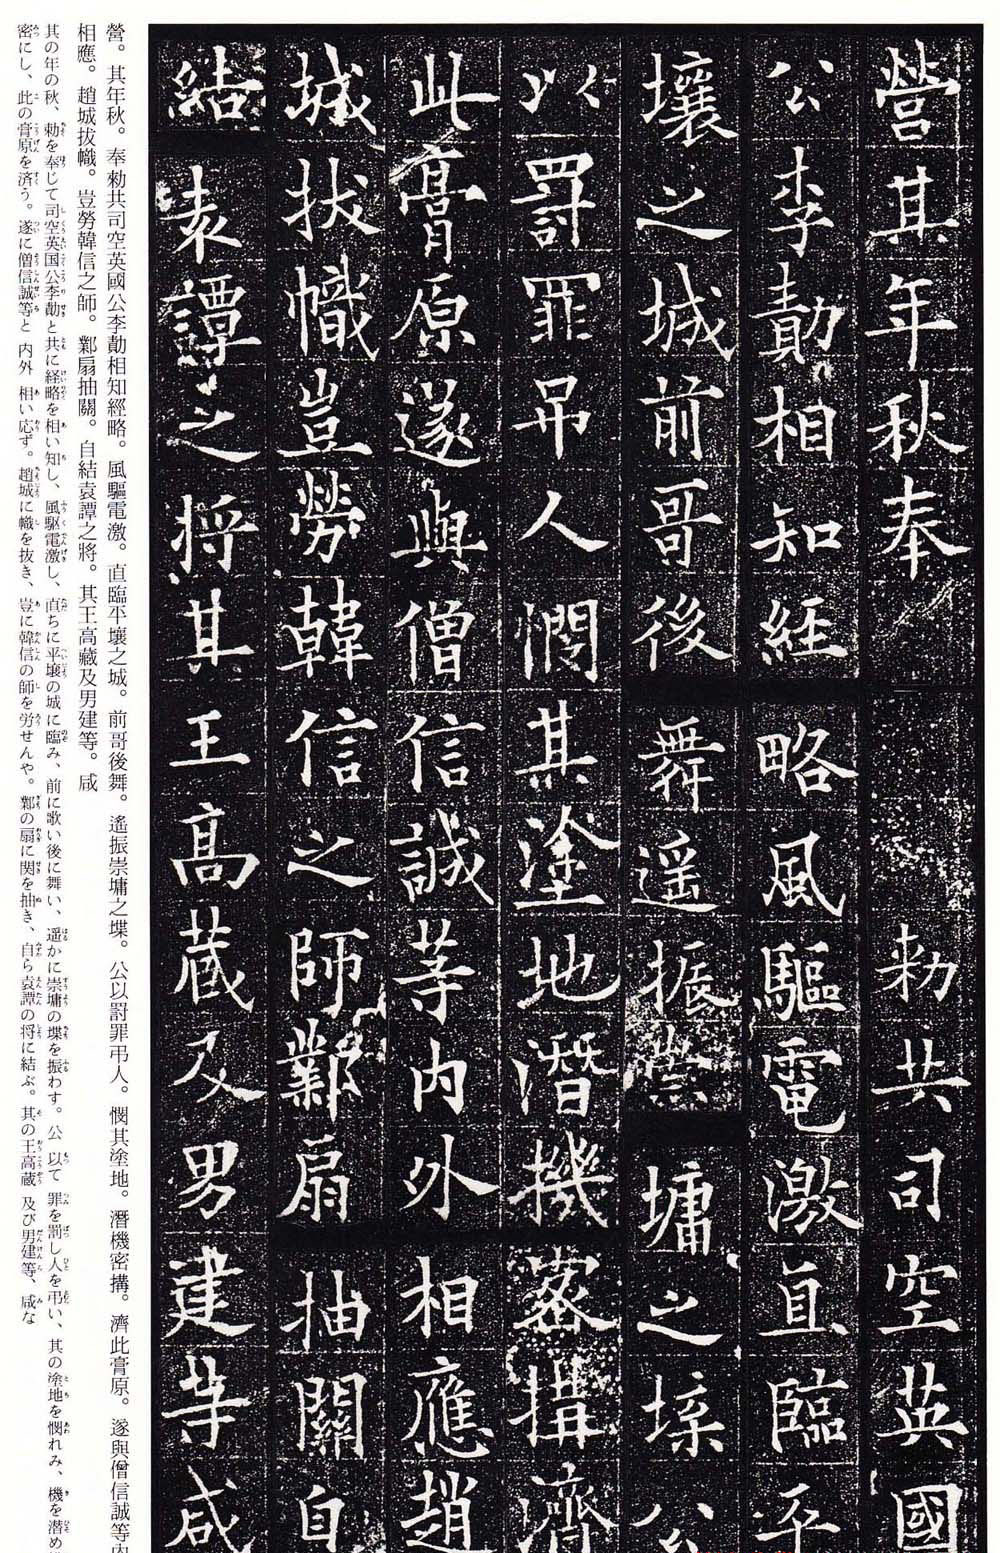 營其年秋奉勅共司空英國
公李勣相知經略風驅電激直臨平
壤之城前哥後舞遥振崇墉之堞公
以罰罪吊人憫其塗地潛機密搆濟
此膏原遂與僧信誠等内外相應趙
城拔幟豈勞韓信之師鄴扇抽關自
結袁譚之將其王高藏及男建等咸
營。其年秋。奉勑共司空英國公李勣相知經略。風驅電激。直臨平壤之城。前哥後舞。遙振崇墉之堞。公以罰罪弔人。憫其塗地。潛機密搆。濟此膏原。遂與僧信誠等内
相應。趙城拔幟。豈勞韓信之師。鄴扇抽關。自結袁譚之將。其王高藏及男建等。咸
其の年の秋、勅を奉じて司空英国公李勣と共に経略を相い知し、風駆電激し、直ちに平壌の城に臨み、前に歌い後に舞い、遥かに崇墉の堞を振わす。公 以て 罪を罰し人を弔い、其の塗地を憫れみ、機を潜め
密にし、此の膏原を済う。遂に僧信誠等と 内外 相い応ず。趙城に幟を抜き、豈に韓信の師を労せんや。鄴の扇に関を抽き、自ら袁譚の将に結ぶ。其の王高蔵 及び男建等、咸な